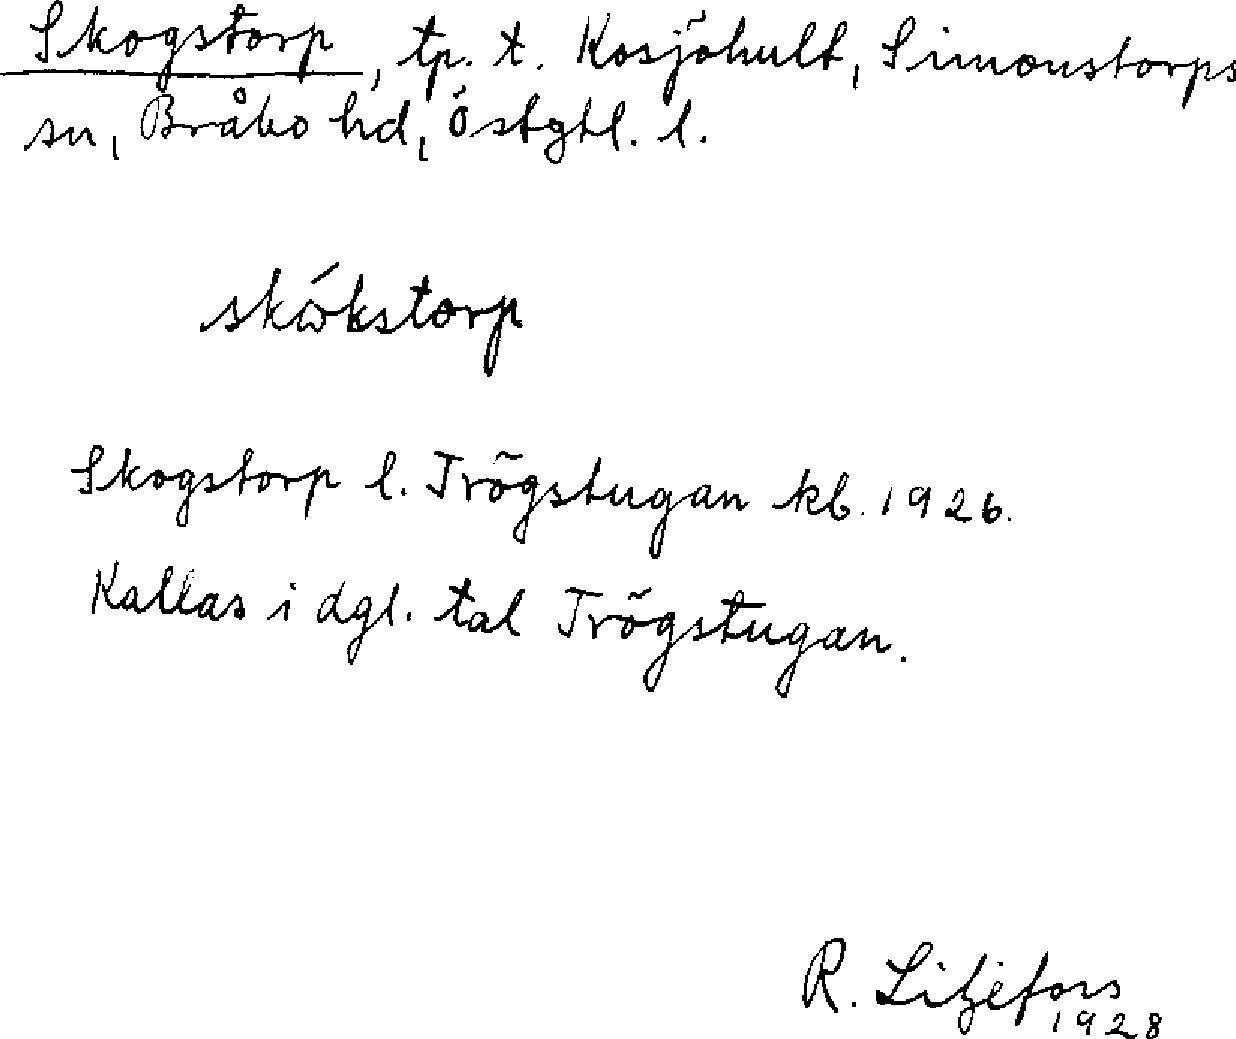 Skogstorp, tp. t. Kosjöhult, Simonstorps
sn, Bråbo hd, Östgtl. l.
skẃkstorp
Skogstorp l. Trögstugan kb. 1926.
Kallas i dgl. tal Trögstugan.
R. Liljefors
1928